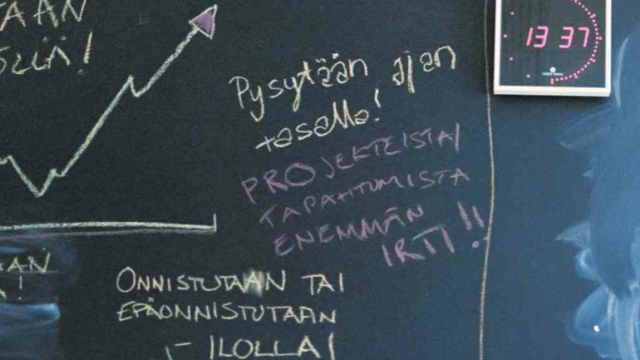 ÄÄN
ÖLLÄ!
13 37
Pysytään ajan
tasalla!
PROJEKTEISTA/
TAPAHTUMISTA
ENEMMÄN
IRTI!!
AAN
!
ONNISTUTAAN TAI
EPÄONNISTUTAAN
- ILOLLA!